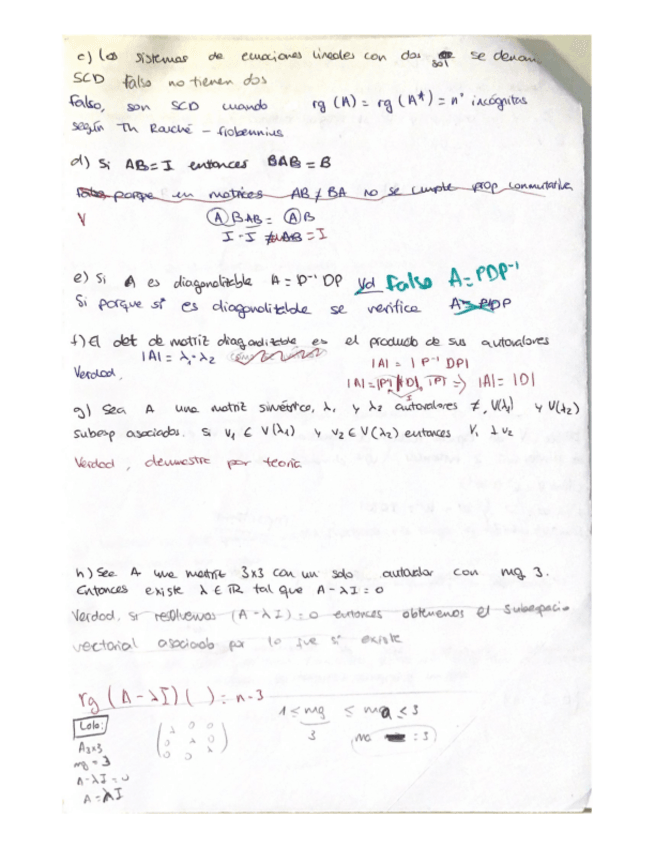 c) Los sistemas de ecuaciones lineales con dos sol se denom.
SCD falso no tienen dos
Falso, son SCD cuando rg (A) = rg (A*) = nº incógnitas
según Th Rouché - frobennius
d) Si AB=I entonces BAB = B
Falso porque en matrices AB ≠ BA no se cumple prop conmutativa
V
(A) BAB = (A) B
I · I = AB = I
e) Si A es diagonalizable A = P⁻¹ DP Falso A = PDP⁻¹
Si porque si es diagonalizable se verifica
f) El det de matriz diagonalizable es el producto de sus autovalores
|A| = λ₁·λ₂
Verdad,
|A| = | P⁻¹ DP|
|A| = |P⁻¹| |D|, |P| => |A| = |D|
g) Sea A una matriz simétrica, λ₁ y λ₂ autovalores ≠, V(λ₁) y V(λ₂)
subesp asociados. Si v₁ ∈ V(λ₁) y v₂ ∈ V(λ₂) entonces v₁ ⊥ v₂
Verdad, demuestre por teoría
h) See A une matriz 3x3 con un solo autovalor con mg 3.
Entonces existe λ ∈ ℝ tal que A - λI = 0
Verdad, si resolvemos (A - λI) = 0 entonces obtenemos el subespacio
vectorial asociado por lo que sí existe
rg (A - λI) ( ) = n - 3
1 ≤ mg ≤ ma ≤ 3
3
ma = 3
Lolo:
A3x3
mg = 3
A - λI = 0
A = λI
λ 0 0
0 λ 0
0 0 λ